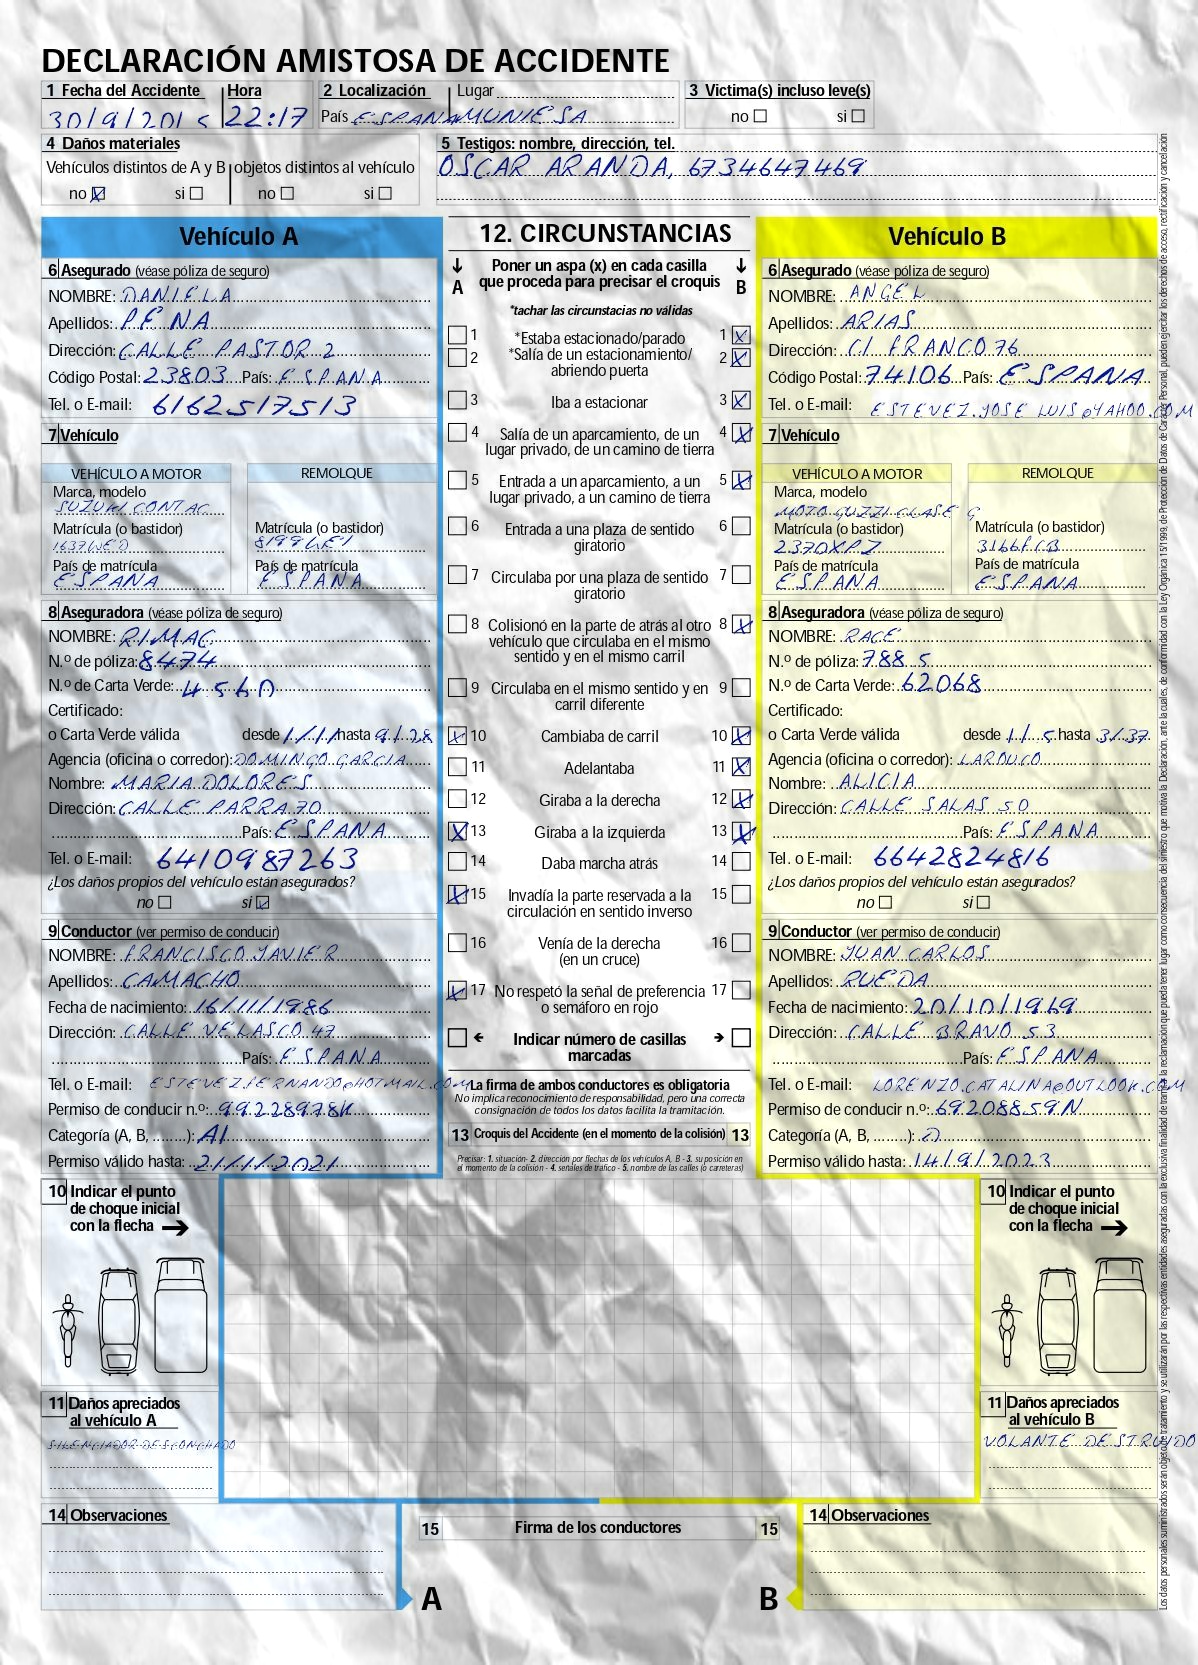 DECLARACIÓN AMISTOSA DE ACCIDENTE
1 Fecha del Accidente Hora 2 Localización Lugar 3 Victima(s) incluso leve(s)
30/9/2015 22:17 País ESPANA MUNIESA no si
4 Daños materiales
Vehículos distintos de A y B objetos distintos al vehículo
no X si no si
5 Testigos: nombre, dirección, tel.
OSCAR ARANDA, 6734647469
Vehículo A
6 Asegurado (véase póliza de seguro)
NOMBRE: DANIELA
Apellidos: PENA
Dirección: CALLE PASTOR 2
Código Postal: 23803 País: ESPANA
Tel. o E-mail: 6162517513
7 Vehículo
VEHÍCULO A MOTOR REMOLQUE
Marca, modelo
SUZUKI CONTAC
Matrícula (o bastidor) Matrícula (o bastidor)
1637WED 8199WEI
País de matrícula País de matrícula
ESPANA ESPANA
8 Aseguradora (véase póliza de seguro)
NOMBRE: RIMAC
N.º de póliza: 8474
N.º de Carta Verde: 4560
Certificado:
o Carta Verde válida desde 1/1/1 hasta 9/1/28
Agencia (oficina o corredor): DOMINGO GARCIA
Nombre: MARIA DOLORES
Dirección: CALLE PARRA 70
País: ESPANA
Tel. o E-mail: 6410987263
¿Los daños propios del vehículo están asegurados?
no si X
9 Conductor (ver permiso de conducir)
NOMBRE: FRANCISCO JAVIER
Apellidos: CAMACHO
Fecha de nacimiento: 16/11/1986
Dirección: CALLE VELASCO 47
País: ESPANA
Tel. o E-mail: ESTEVEZFERNANDO@HOTMAIL.COM
Permiso de conducir n.º: 99228978K
Categoría (A, B, ........): A1
Permiso válido hasta: 21/1/2021
10 Indicar el punto
de choque inicial
con la flecha →
11 Daños apreciados
al vehículo A
SILENCIADOR DESCONCHADO
14 Observaciones
12. CIRCUNSTANCIAS
↓ Poner un aspa (x) en cada casilla ↓
A que proceda para precisar el croquis B
*tachar las circunstacias no válidas
1 *Estaba estacionado/parado 1 X
2 *Salía de un estacionamiento/ 2 X
abriendo puerta
3 Iba a estacionar 3 X
4 Salía de un aparcamiento, de un 4 X
lugar privado, de un camino de tierra
5 Entrada a un aparcamiento, a un 5 X
lugar privado, a un camino de tierra
6 Entrada a una plaza de sentido 6
giratorio
7 Circulaba por una plaza de sentido 7
giratorio
8 Colisionó en la parte de atrás al otro 8 X
vehículo que circulaba en el mismo
sentido y en el mismo carril
9 Circulaba en el mismo sentido y en 9
carril diferente
X 10 Cambiaba de carril 10 X
11 Adelantaba 11 X
12 Giraba a la derecha 12 X
X 13 Giraba a la izquierda 13 X
14 Daba marcha atrás 14
X 15 Invadía la parte reservada a la 15
circulación en sentido inverso
16 Venía de la derecha 16
(en un cruce)
X 17 No respetó la señal de preferencia 17
o semáforo en rojo
← Indicar número de casillas →
marcadas
La firma de ambos conductores es obligatoria
No implica reconocimiento de responsabilidad, pero una correcta
consignación de todos los datos facilita la tramitación.
13 Croquis del Accidente (en el momento de la colisión) 13
Precisar: 1. situación- 2. dirección por flechas de los vehículos A, B - 3. su posición en
el momento de la colisión - 4. señales de tráfico - 5. nombre de las calles (o carreteras)
15 Firma de los conductores 15
A B
Vehículo B
6 Asegurado (véase póliza de seguro)
NOMBRE: ANGEL
Apellidos: ARIAS
Dirección: C/ FRANCO 76
Código Postal: 74106 País: ESPANA
Tel. o E-mail: ESTEVEZ.JOSE LUIS@YAHOO.COM
7 Vehículo
VEHÍCULO A MOTOR REMOLQUE
Marca, modelo
MOTO GUZZI CLASE G
Matrícula (o bastidor) Matrícula (o bastidor)
2370XPZ 3166FCB
País de matrícula País de matrícula
ESPANA ESPANA
8 Aseguradora (véase póliza de seguro)
NOMBRE: RACE
N.º de póliza: 7885
N.º de Carta Verde: 62068
Certificado:
o Carta Verde válida desde 1/1/5 hasta 3/37
Agencia (oficina o corredor): LARDUCO
Nombre: ALICIA
Dirección: CALLE SALAS 50
País: ESPANA
Tel. o E-mail: 6642824816
¿Los daños propios del vehículo están asegurados?
no si
9 Conductor (ver permiso de conducir)
NOMBRE: JUAN CARLOS
Apellidos: RUEDA
Fecha de nacimiento: 20/10/1969
Dirección: CALLE BRAVO 53
País: ESPANA
Tel. o E-mail: LORENZO.CATALINA@OUTLOOK.COM
Permiso de conducir n.º: 69208859N
Categoría (A, B, ........): D
Permiso válido hasta: 14/9/2023
10 Indicar el punto
de choque inicial
con la flecha →
11 Daños apreciados
al vehículo B
VOLANTE DESTRUIDO
14 Observaciones